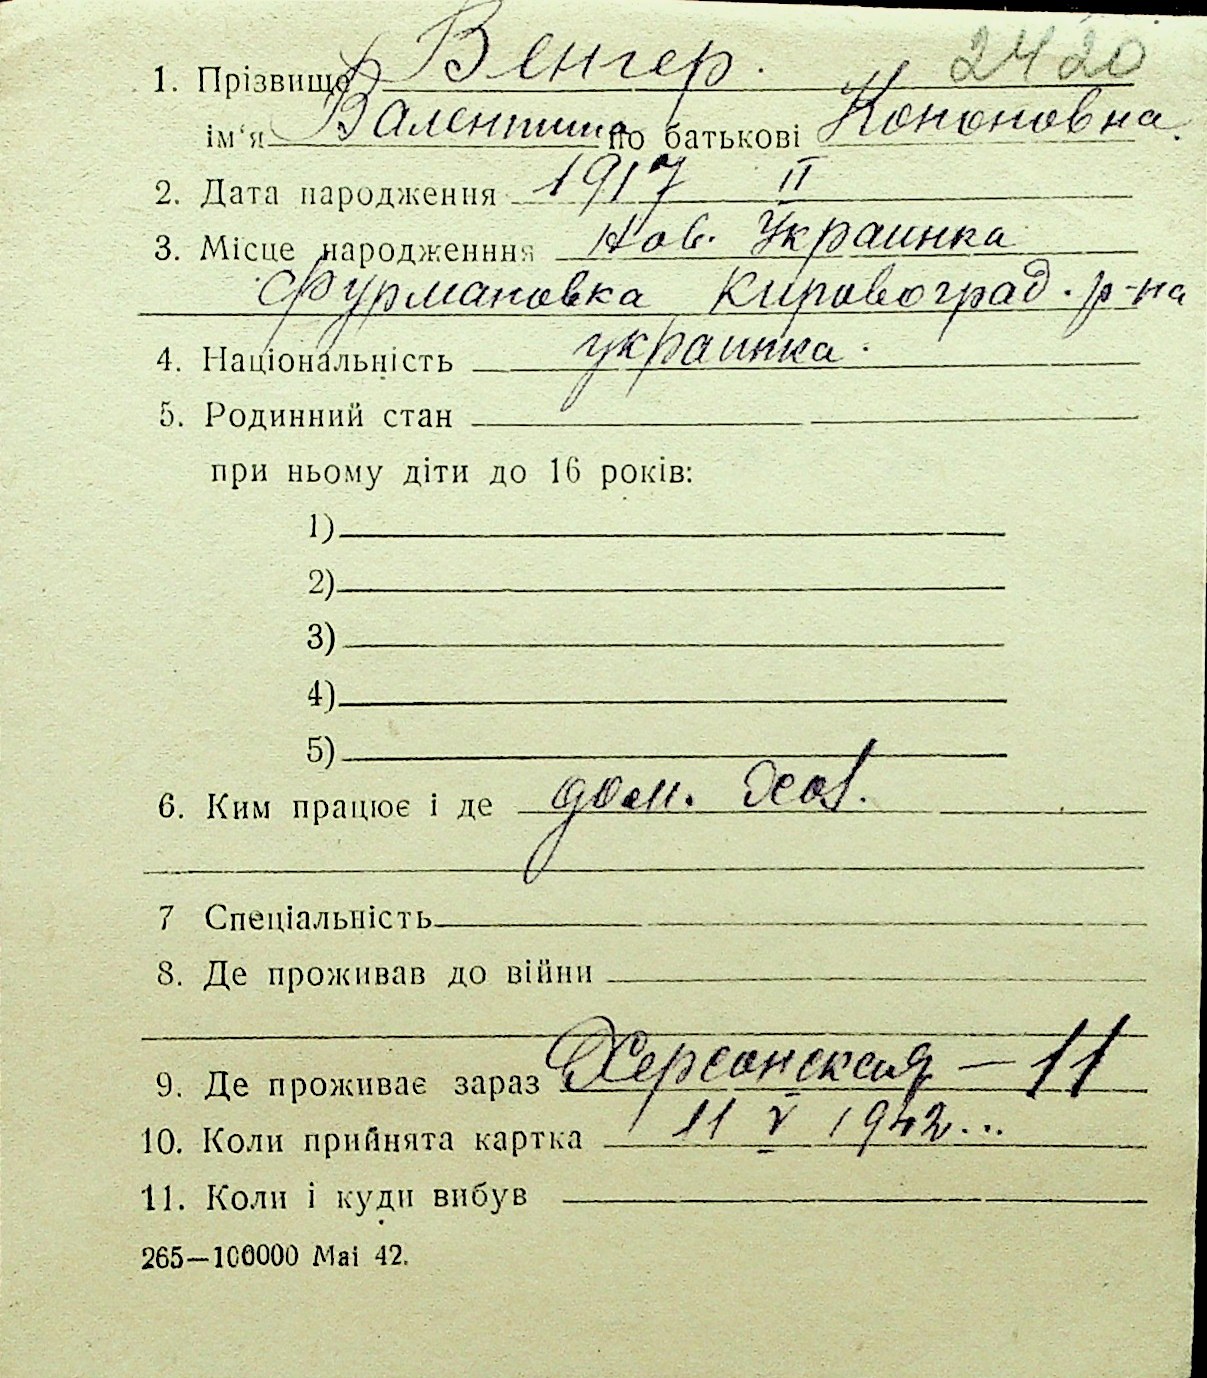 2420
1. Прізвище Венгер.
ім'я Валентина по батькові Кононовна.
2. Дата народження 1917 II
3. Місце народженння Нов. Украинка
Фурмановка Кировоград. р-на
4. Національність украинка.
5. Родинний стан
при ньому діти до 16 років:
1)
2)
3)
4)
5)
6. Ким працює і де дом. хоз.
7 Спеціальність
8. Де проживав до війни
9. Де проживає зараз Херсонская – 11
10. Коли прийнята картка 11 V 1942...
11. Коли і куди вибув
265—100000 Mai 42.